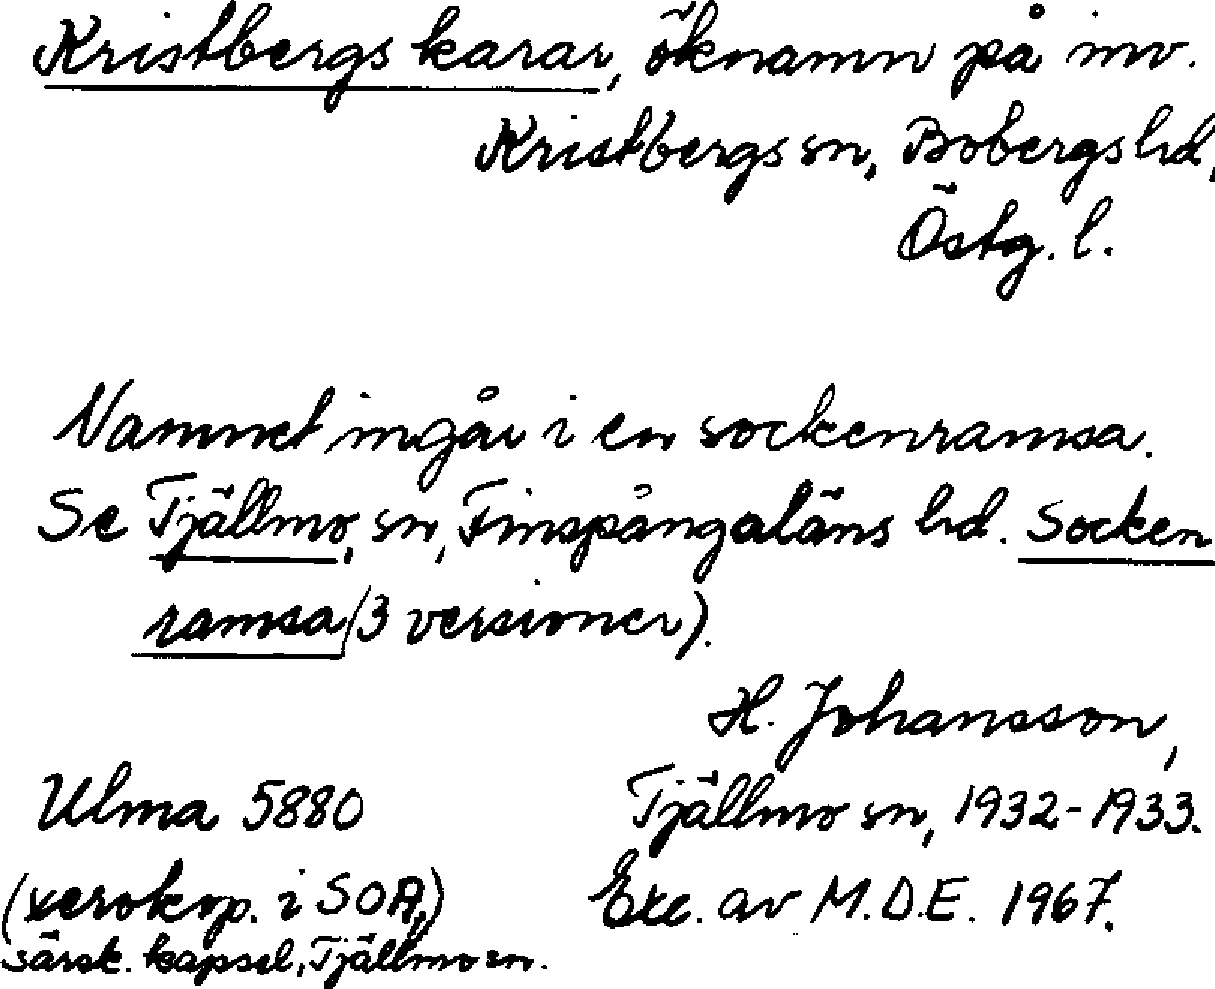 Kristbergs karar, öknamn på inv.
Kristbergs sn, Bobergs hd,
Östg. l.
Namnet ingår i en sockenramsa.
Se Tjällmo, sn, Finspångaläns hd. Socken
ramsa (3 versioner).
H. Johansson,
Ulma 5880
Tjällmo sn, 1932-1933.
(xerokop. i SOA,)
Exc. av M.D.E. 1967.
särsk. kapsel, Tjällmo sn.